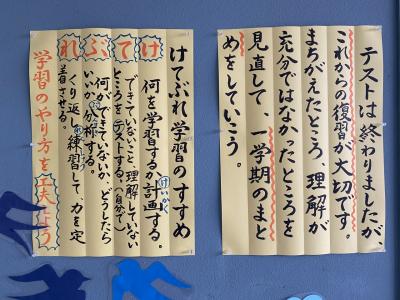 テストは終わりましたが、
これからの復習が大切です。
まちがえたところ、理解が
充分ではなかったところを
見直して、一学期のまと
めをしていこう。
けてぶれ学習のすすめ
け
何を学習するか計画する。
けいかく
て
できていないこと、理解していない
ところをテストする。(自分で)
ぶ
何ができていないか、どうしたら
いいか分析する。
ぶんせき
れ
くり返し練習して、力を定
れんしゅう
着させる。
学習のやり方を工夫しよう